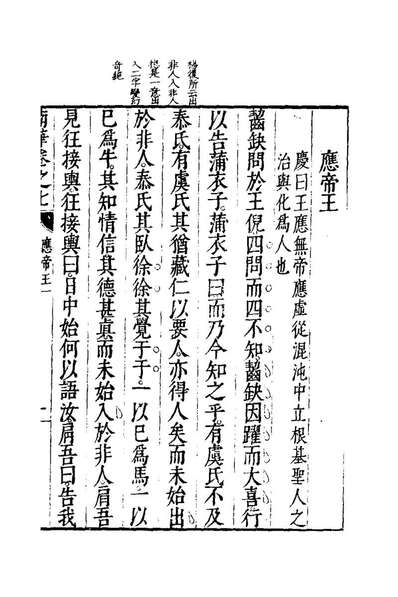 梅復所云出
非人入非人
總是一意出
入二字變幻
奇絕
應帝王
慶曰王應無帝應虛從混沌中立根基聖人之
治與化爲人也
齧缺問於王倪四問而四不知齧缺因躍而大喜行
以告蒲衣子蒲衣子曰而乃今知之乎有虞氏不及
泰氏有虞氏其猶藏仁以要人亦得人矣而未始出
於非人泰氏其臥徐徐其覺于于一以已爲馬一以
已爲牛其知情信其德甚眞而未始入於非人肩吾
見狂接輿狂接輿曰日中始何以語汝肩吾曰告我
南華卷之七
應帝王
一